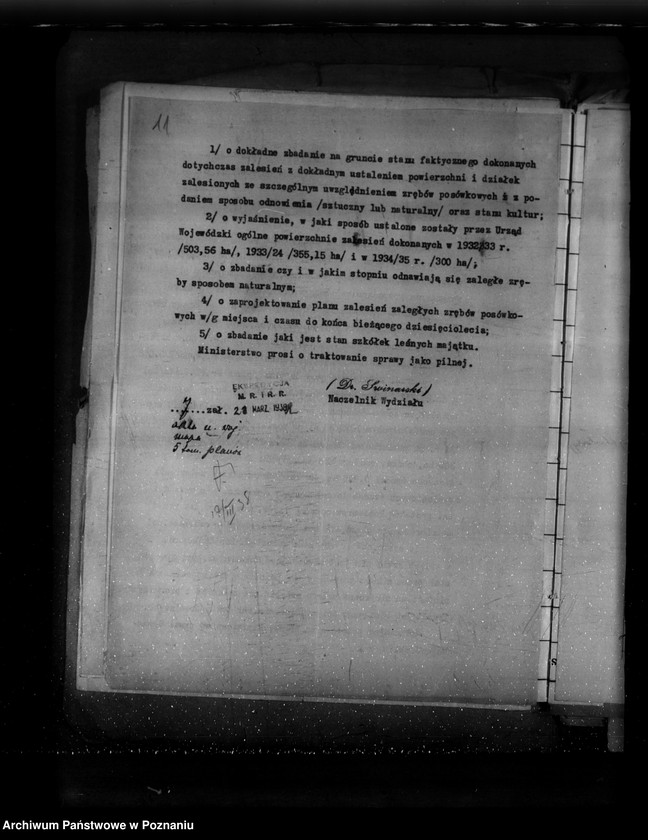 11
1/ o dokładne zbadanie na gruncie stanu faktycznego dokonanych
dotychczas zalesień z dokładnym ustaleniem powierzchni i działek
zalesionych ze szczególnym uwzględnieniem zrębów posówkowych i z po-
daniem sposobu odnowienia /sztuczny lub naturalny/ oraz stanu kultur;
2/ o wyjaśnienie, w jaki sposób ustalone zostały przez Urząd
Wojewódzki ogólne powierzchnie zalesień dokonanych w 1932/33 r.
/503,56 ha/, 1933/24 /355,15 ha/ i w 1934/35 r. /300 ha/;
3/ o zbadanie czy i w jakim stopniu odnawiają się zaległe zrę-
by sposobem naturalnym;
4/ o zaprojektowanie planu zalesień zaległych zrębów posówko-
wych w/g miejsca i czasu do końca bieżącego dziesięciolecia;
5/ o zbadanie jaki jest stan szkółek leśnych majątku.
Ministerstwo prosi o traktowanie sprawy jako pilnej.
EKSPEDYCJA
M. R. i R. R.
zał. 21 MARZ 1938
(Dr. Swinarski)
Naczelnik Wydziału
akta u. woj
mapa
5 tom. planów